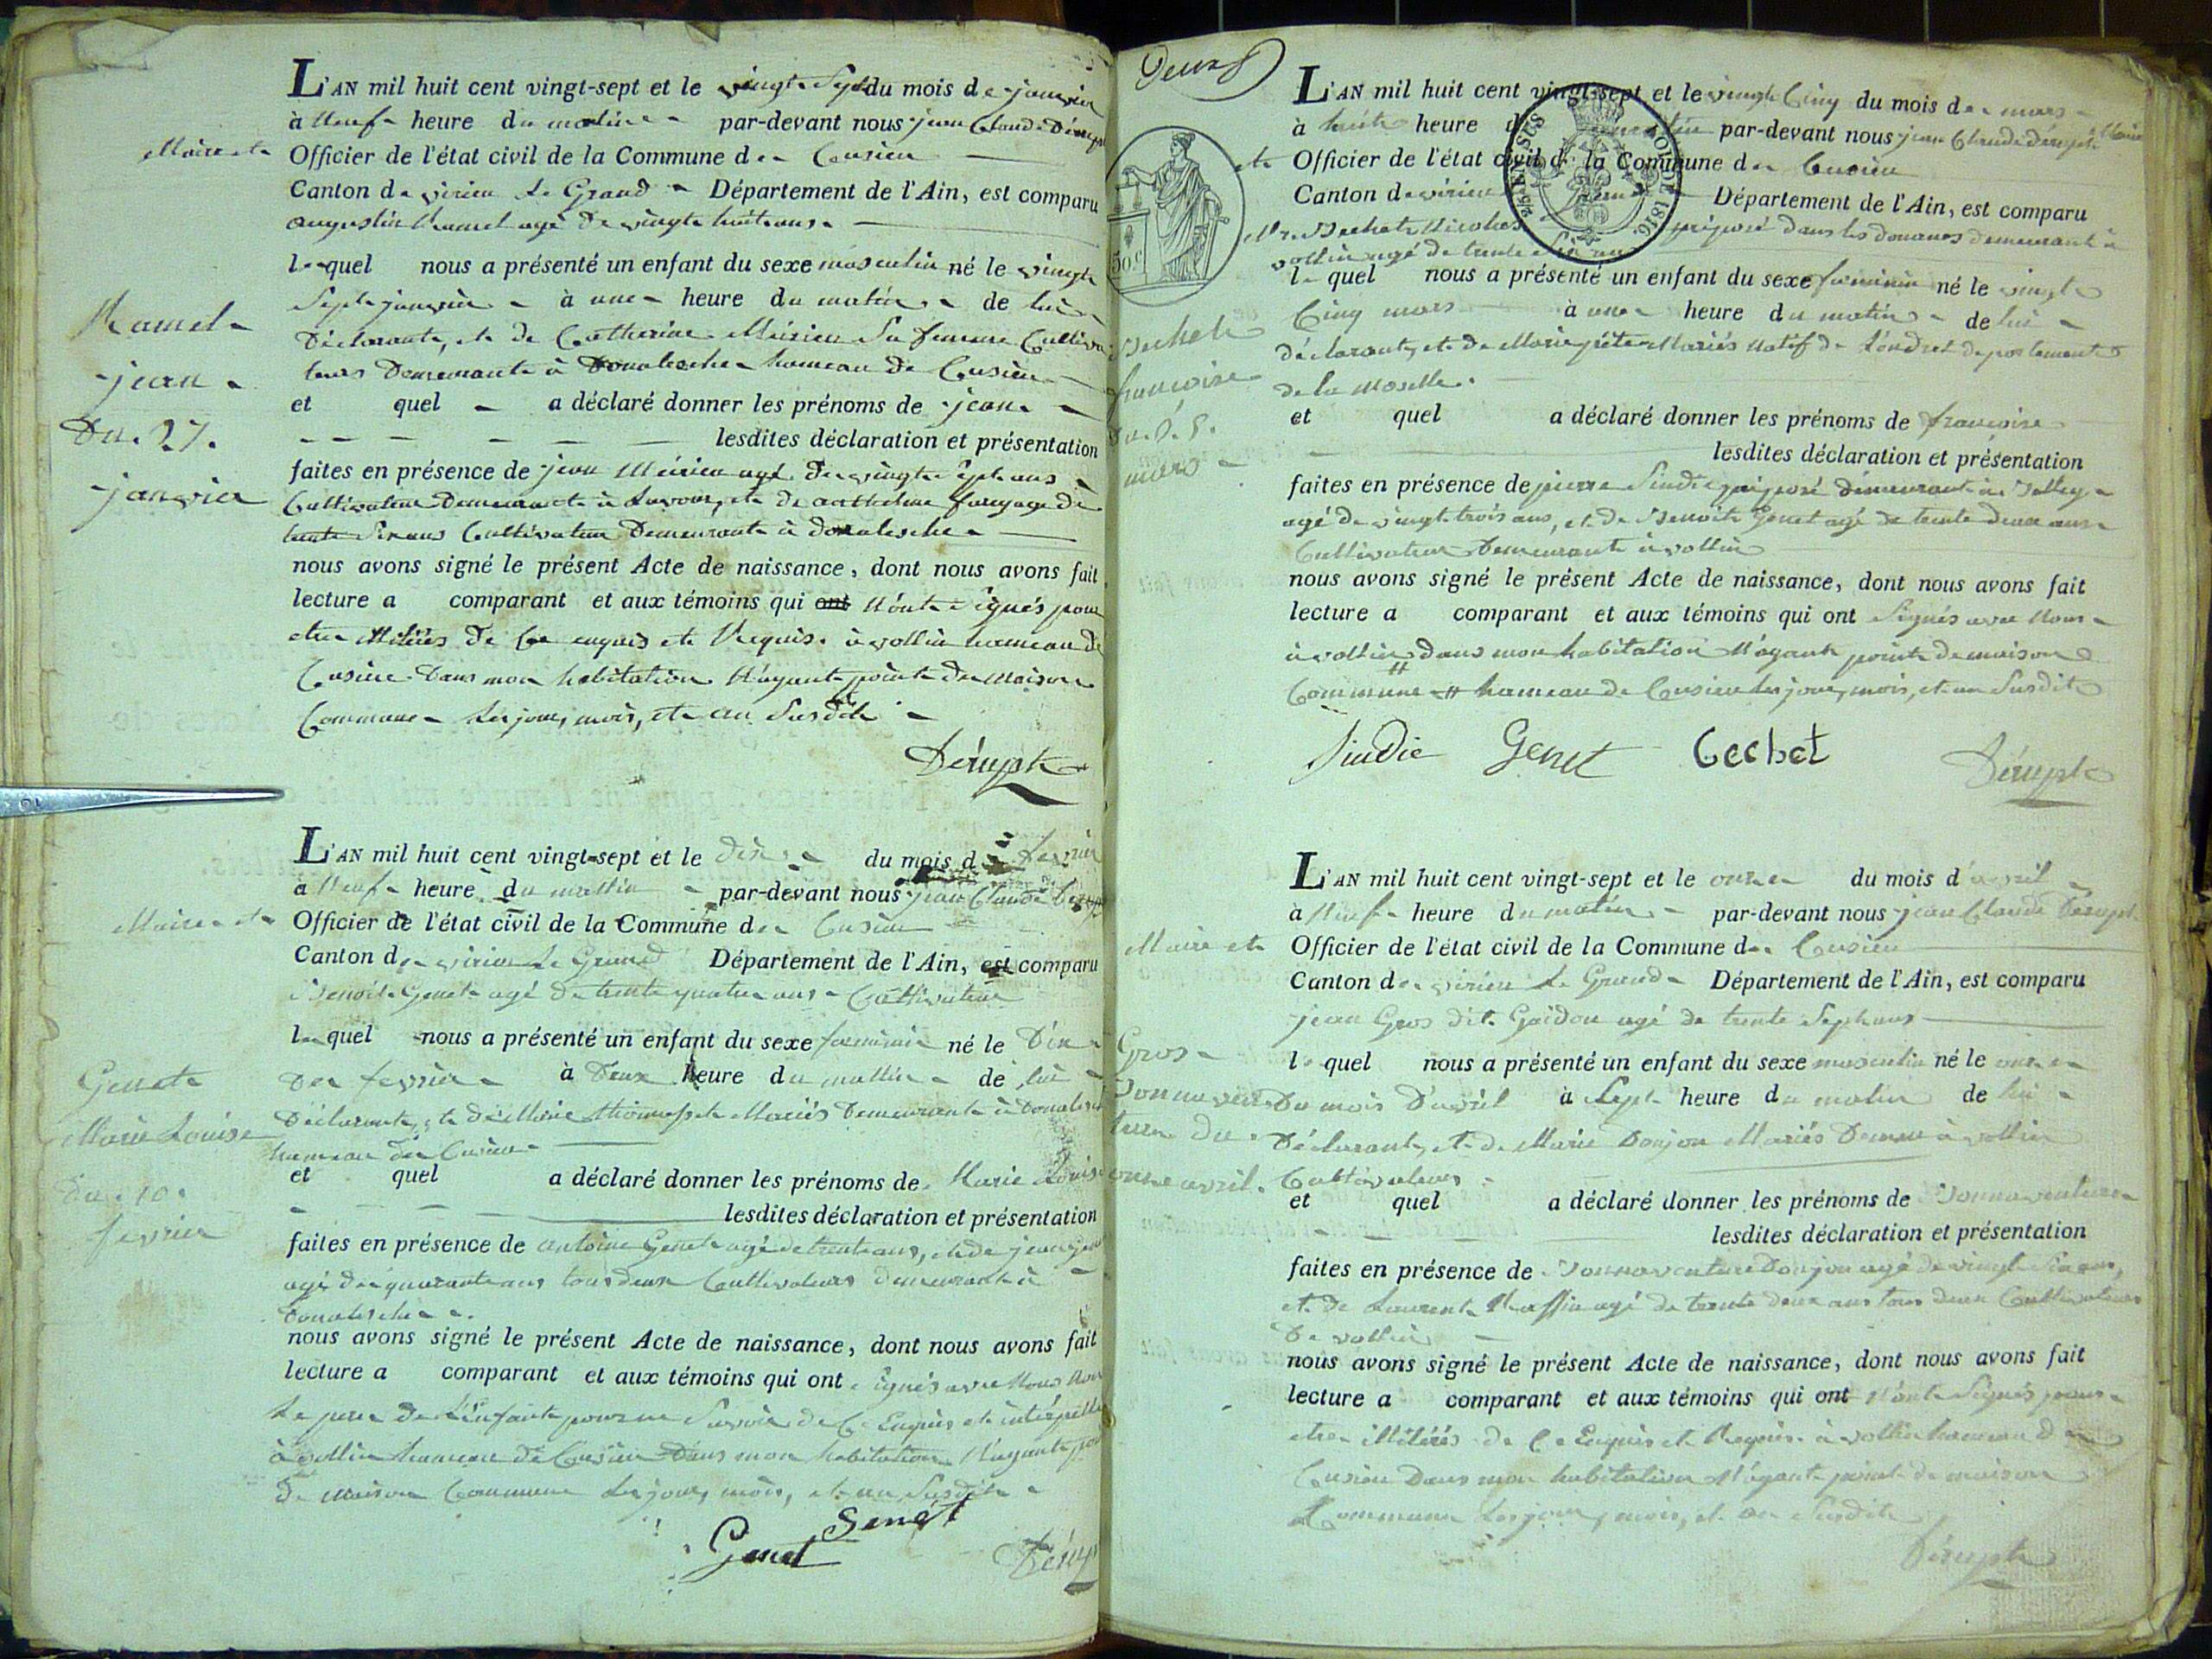 L'AN mil huit cent vingt-sept et le vingt Sept du mois de janvier
à Neuf heure du matin par-devant nous jean Claude Dérupt
Maire et Officier de l'état civil de la Commune de Cusieu
Canton de virieu le Grand Département de l'Ain, est comparu
augustin Ramel agé de vingt huit ans
lequel nous a présenté un enfant du sexe masculin né le vingt
Sept janvier à une heure du matin de lui
Déclarant, et de Catherine Mérieu Sa femme Cultiva
teurs Demeurant à hameau de Cusieu
et quel a déclaré donner les prénoms de jean
lesdites déclaration et présentation
faites en présence de jean Mérieu agé de vingt Sept ans
Cultivateur Demeurant à et de agé de
trente Six ans Cultivateur Demeurant à
nous avons signé le présent Acte de naissance, dont nous avons fait
lecture a comparant et aux témoins qui ont N'ont Signés pour
etre de Ce enquis et Requis. à vollin hameau de
Cusieu Dans mon habitation N'ayant point de Maison
Commune Les jour, mois, et an Susdit
Dérupt
Ramel
jean
Du 27.
janvier
L'AN mil huit cent vingt-sept et le Dix du mois de fevrier
à Neuf heure du mattin par-devant nous jean Claude Dérupt
Maire et Officier de l'état civil de la Commune de Cusieu
Canton de virieu le Grand Département de l'Ain, est comparu
Benoit Genet agé de trente quatre ans Cultivateur
lequel nous a présenté un enfant du sexe feminin né le Dix
De fevrier à Deux heure du mattin de lui
Déclarant, et de Marie Mariés Demeurant à
hameau de Cusieu
et quel a déclaré donner les prénoms de Marie Louise
lesdites déclaration et présentation
faites en présence de antoine Genet agé de trente ans, et de jean Genet
agé de quarante ans tous deux Cultivateurs demeurant à
nous avons signé le présent Acte de naissance, dont nous avons fait
lecture a comparant et aux témoins qui ont Signés avec Nous Non
Le pere de L'enfant pour ne Savoir de Ce Enquis et interpellé
à vollin hameau de Cusieu Dans mon habitation N'ayant point
de maison Commune Les jour, mois, et an Susdit
Genet Genet Dérupt
Genet
Marie Louise
Du 10.
fevrier
Deux
L'AN mil huit cent vingt-sept et le vingt Cinq du mois de mars
à huit heure du matin par-devant nous jean Claude Dérupt Maire
et Officier de l'état civil de la Commune de Cusieu
Canton de virieu Grand Département de l'Ain, est comparu
Mr. Bechet Nicolas préposé dans les douanes demeurant à
vollin agé de trente Six ans
lequel nous a présenté un enfant du sexe feminin né le vingt
Cinq mars à une heure du matin de lui
déclarant, et de Marie Mariés Natif de departement
de la Moselle.
et quel a déclaré donner les prénoms de francoise
lesdites déclaration et présentation
faites en présence de pierre Sindic préposé demeurant à
agé de vingt trois ans, et de Benoit Genet agé de trente deux ans
Cultivateur Demeurant à vollin
nous avons signé le présent Acte de naissance, dont nous avons fait
lecture a comparant et aux témoins qui ont Signés avec Nous
à vollin dans mon habitation N'ayant point de maison
Commune # hameau de Cusieu Les jour, mois, et an Susdit
Sindic Genet Bechet Dérupt
30.c
Bechet
francoise
mars
L'AN mil huit cent vingt-sept et le onze du mois d'avril
à Neuf heure du matin par-devant nous jean Claude Dérupt
Maire et Officier de l'état civil de la Commune de Cusieu
Canton de virieu le Grand Département de l'Ain, est comparu
jean Gros dit Goidou agé de trente Sept ans
lequel nous a présenté un enfant du sexe masculin né le onze
Du mois D'avril à Sept heure du matin de lui
Déclarant, et de Marie Donjon Mariés Demeu à vollin
Cultivateurs
et quel a déclaré donner les prénoms de Bonnaventure
lesdites déclaration et présentation
faites en présence de Bonnaventure Donjon agé de vingt Six ans,
et de Laurent agé de trente deux ans tous deux Cultivateurs
De vollin
nous avons signé le présent Acte de naissance, dont nous avons fait
lecture a comparant et aux témoins qui ont N'ont Signés pour
etre illitérés de Ce Enquis et Requis. à vollin hameau de
Cusieu Dans mon habitation N'ayant point de maison
Commune Les jour, mois, et an Susdit
Dérupt
Gros
Bonnaven
ture Du
onze avril.